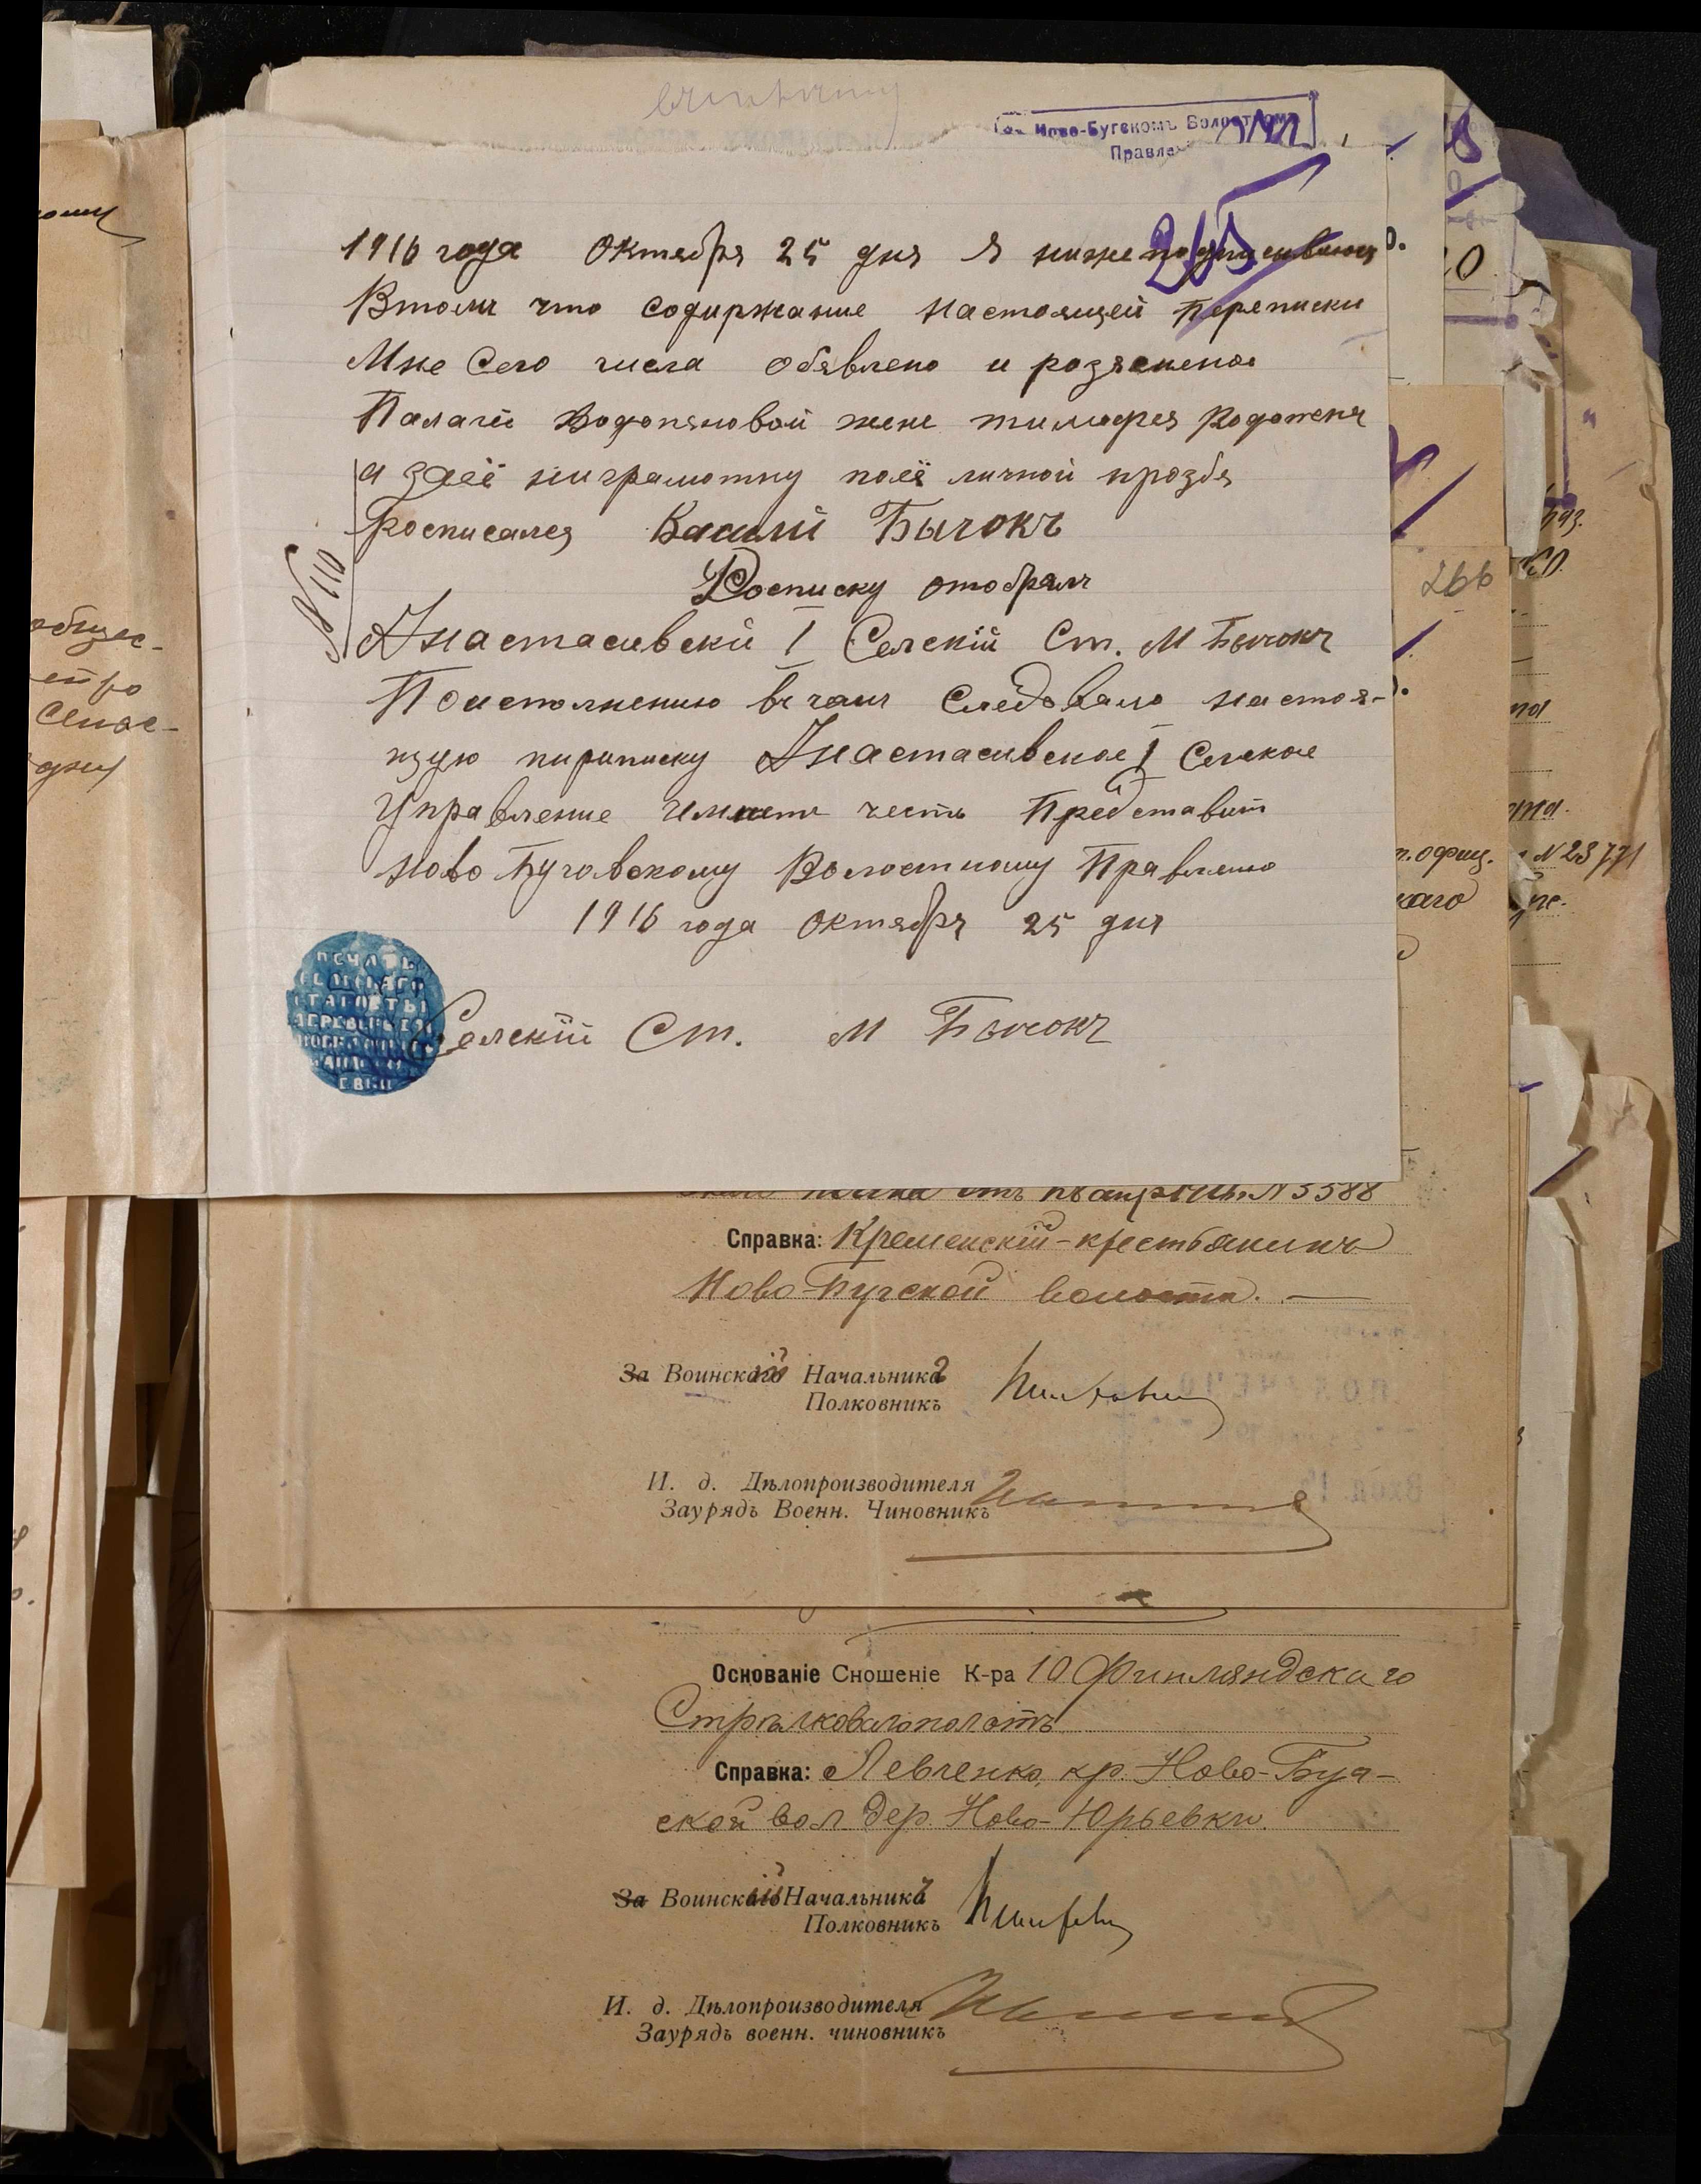 Ново-Бугскомъ Волостномъ
Правле
265
1916 года Октября 25 дня Я ниже подписавшиц
Втомъ что Содиржание Настоящей Переписки
Мне Сего числа обявлено и розяснено
Палагеи Водопяновой жене тимофея
а заеё ниграмотну поеё личной прозбя
Росписался Василй Бычокъ
Росписку отобралъ
Анастасивский I Селскій Ст. М Бычокъ
Поисполнению въ чомъ Следовало настоя-
щую пириписку Анастасивское I Селское
Управление имиетъ честь Представит
Ново Буговскому Волостному Правлению
1916 года октября 25 дня
№ 110
Селскій Ст. М Бычокъ
ПЕЧАТЬ
СЕЛЬСКАГО
СТАРОСТЫ
ДЕРЕВЕНЬ
266
№ 5588
Справка: Кременскій-крестьянинъ
Ново-Бугской волости.
За Воинскій Начальникъ
Полковникъ
И. д. Дѣлопроизводителя
Заурядъ Военн. Чиновникъ
Основаніе Сношеніе К-ра 10 Финляндскаго
Стрѣлковагополотъ
Справка: Левченко, кр. Ново-Буг-
ской вол. дер. Ново-Юрьевки.
За Воинскій Начальникъ
Полковникъ
И. д. Дѣлопроизводителя
Заурядъ военн. чиновникъ
общес-
№ 23771
т.офиц.
каго